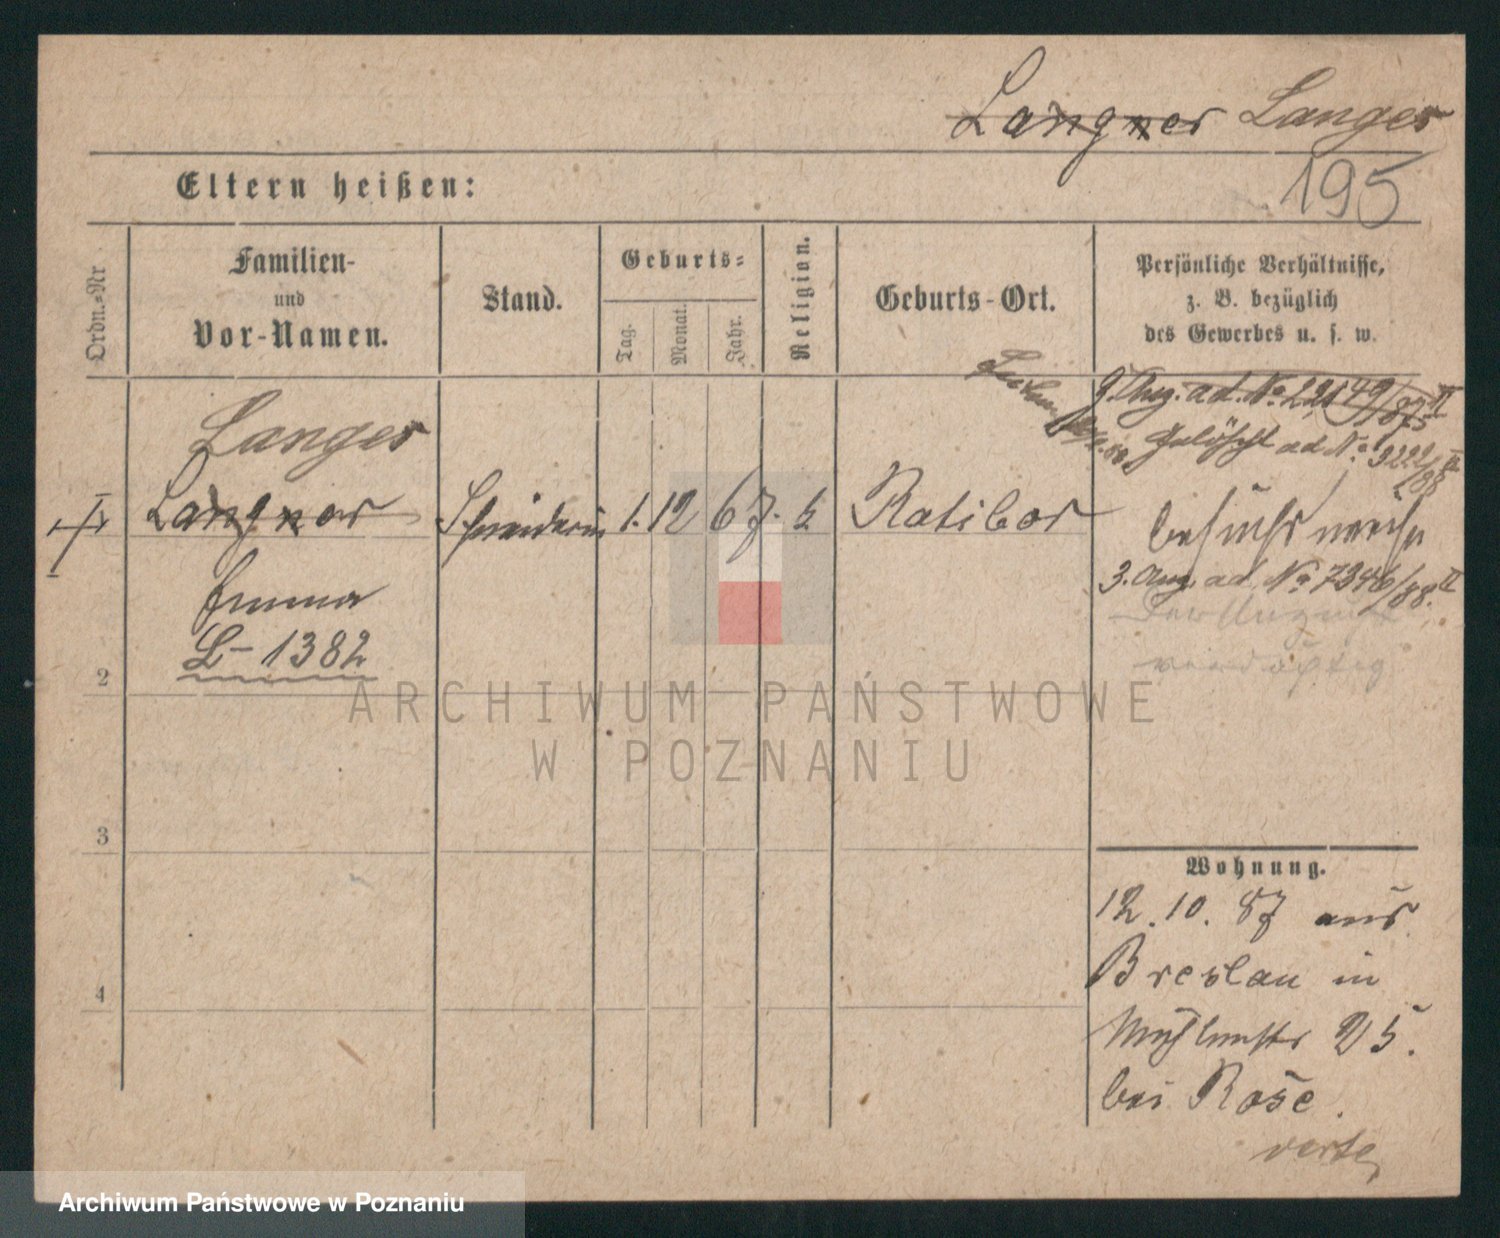 Langner Langer
195
Eltern heißen:
Ordn.=Nr
Familien-
und
Vor-Namen.
Stand.
Geburts=
Tag.
Monat.
Jahr.
Religion.
Geburts-Ort.
Persönliche Verhältnisse,
z. B. bezüglich
des Gewerbes u. s. w.
Langer
Langner
Schneiderin
1.
12
67.
k
Ratibor
Emma
L- 1382
ad. No
gelöscht ad No. 3222/88
besucht
3. ad No 7346/88. II
2
3
4
Wohnung.
12. 10. 87 aus
Breslau in
Mühlenstr 25.
bei Rose.
verte
ARCHIWUM PAŃSTWOWE
W POZNANIU
Archiwum Państwowe w Poznaniu